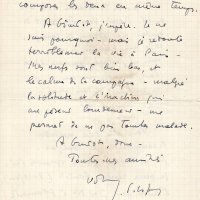 composer les deux en même temps.
A bientôt, j'espère. Je ne
sais pourquoi - mais je redoute
terriblement la vie à Paris -
Mes nerfs sont bien bas, et
le calme de la campagne - malgré
la solitude et l'inaction qui
me pèsent lourdement - me
permet de ne pas tomber malade.
A bientôt, donc -
Toutes mes amitiés